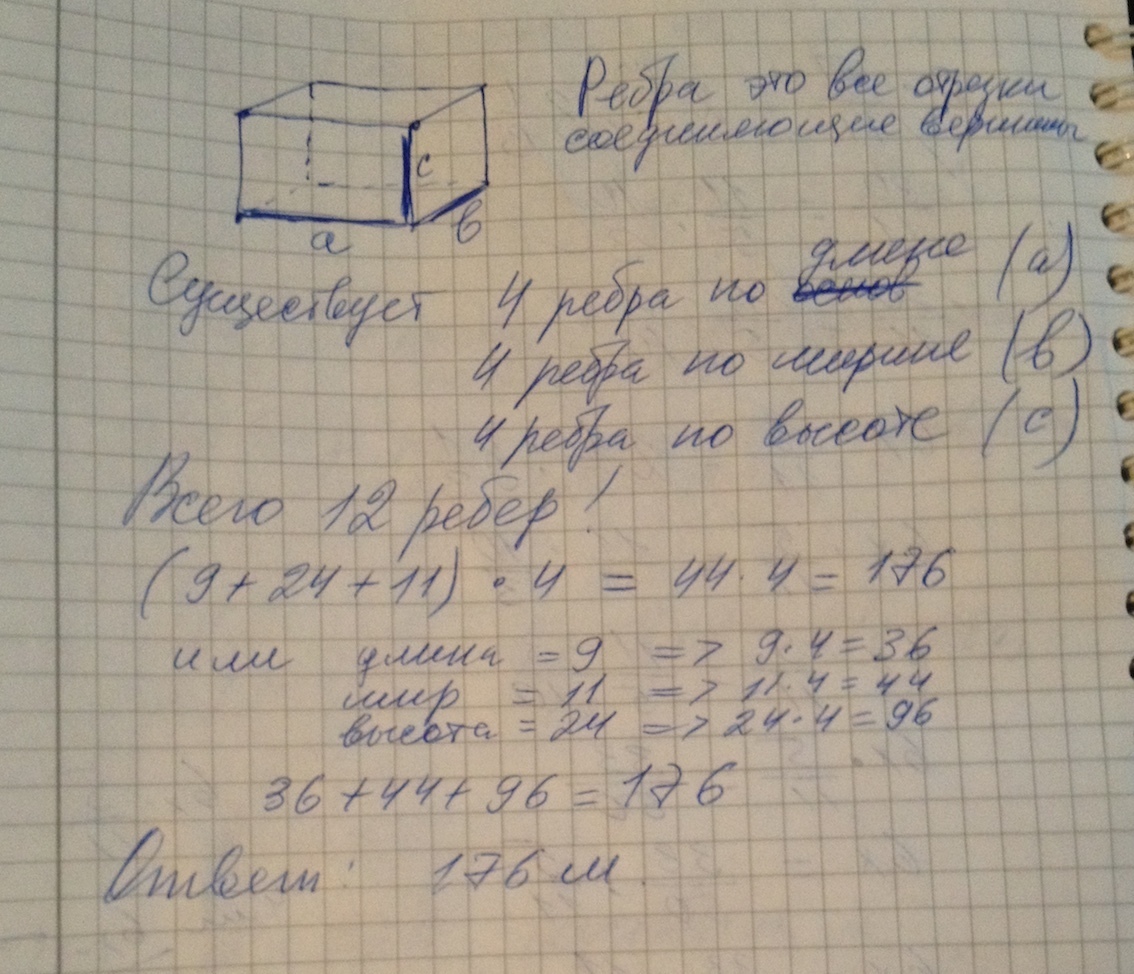 Ребра это все отрезки
соединяющие вершины
c
a
в
длине
Существует 4 ребра по основ (а)
4 ребра по ширине (в)
4 ребра по высоте (с)
Всего 12 ребер!
(9+24+11) · 4 = 44·4 = 176
или длина = 9 => 9·4=36
шир = 11 => 11·4=44
высота = 24 => 24·4=96
36+44+96=176
Ответ: 176 м.